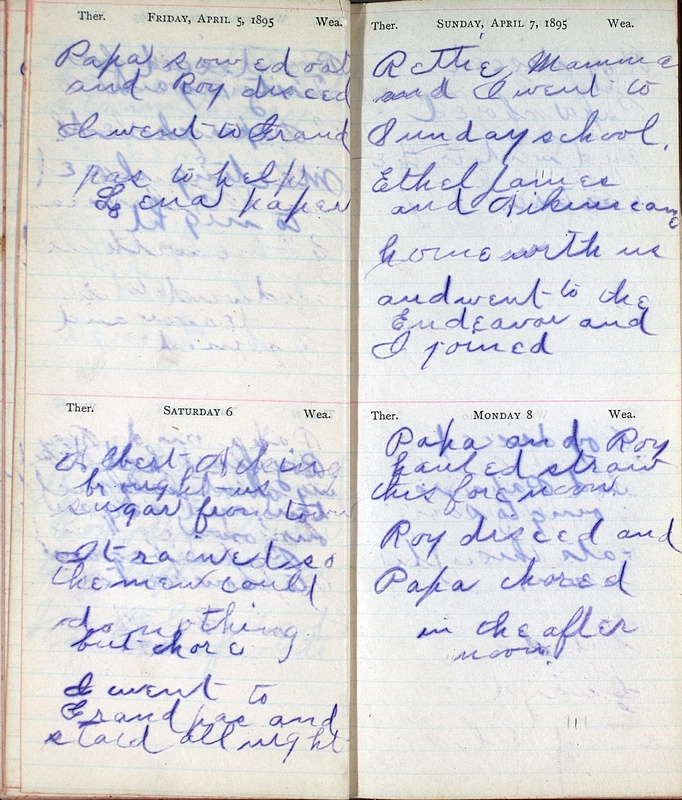 Ther. FRIDAY, APRIL 5, 1895 Wea.
Papa sowed oat
and Roy disced
I went to Grand
pas to help
Lena paper
Ther. SATURDAY 6 Wea.
Albert Aikins
brought us
sugar from town
It rained so
the men could
do nothing
but chore
I went to
Grand pas and
staid all night
Ther. SUNDAY, APRIL 7, 1895 Wea.
Rettie, Mamma
and I went to
Sunday school.
Ethel James
and Aikins came
home with us
and went to the
Endeavor and
I joined
Ther. MONDAY 8 Wea.
Papa and Roy
hauled straw
this forenoon.
Roy disced and
Papa chored
in the after
noon.